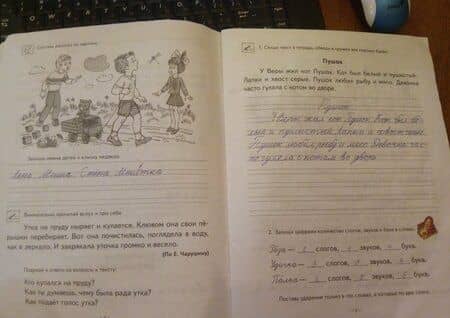 Составь рассказ по картинке.
Запиши имена детей и кличку медведя.
Лена Миша Стёпа Мишутка
Внимательно прочитай вслух и про себя.
Утка на пруду ныряет и купается. Клювом она свои пё-
рышки перебирает. Вот она почистилась, поглядела в воду,
как в зеркало. И закрякала уточка громко и весело.
(По Е. Чарушину)
Подумай и ответь на вопросы к тексту:
Кто купался на пруду?
Как ты думаешь, чему была рада утка?
Как подаёт голос утка?
1. Спиши текст в тетрадь, обведи в кружок все гласные буквы.
Пушок
У Веры жил кот Пушок. Кот был белый и пушистый.
Лапки и хвост серые. Пушок любил рыбу и мясо. Девочка
часто гуляла с котом во дворе.
Пушок
У Веры жил кот Пушок. Кот был бе-
и пушистый Лапки и хвост серые.
Пушок любил рыбу и мясо. Девочка час-
то гуляла с котом во дворе
2. Запиши цифрами количество слогов, звуков и букв в словах.
слогов, звуков, букв.
Удочка — слогов, звуков, букв.
Палка — слогов, звуков, букв.
Поставь ударение только в тех словах, в которых по два слога.